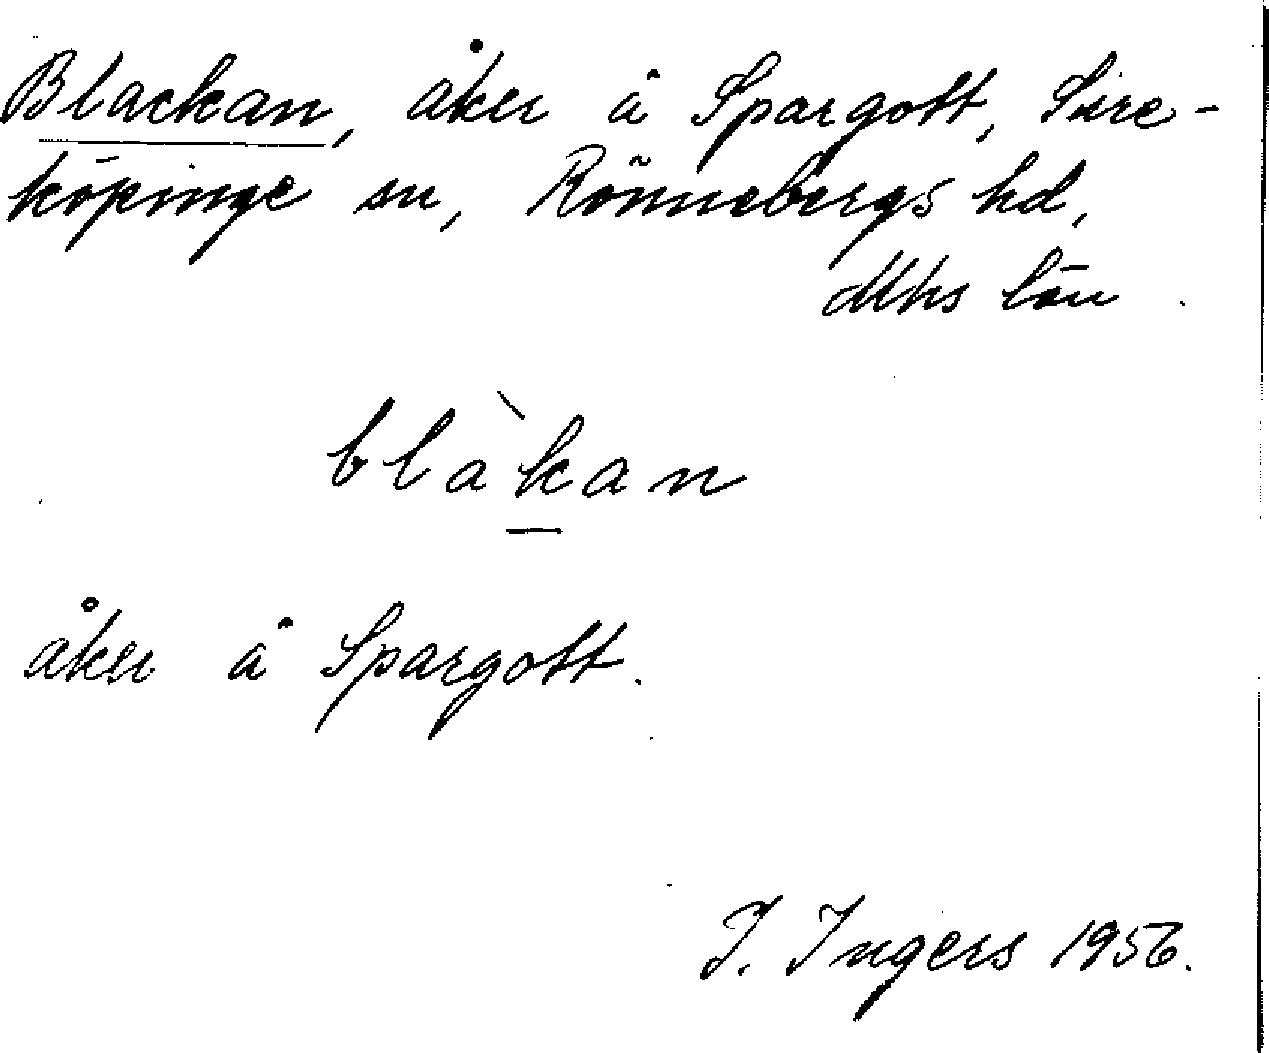 Blackan, åker å Spargott, Sire-
köpinge sn, Rönnebergs hd,
Mhs län
blàkan
åker å Spargott.
I. Ingers 1956.